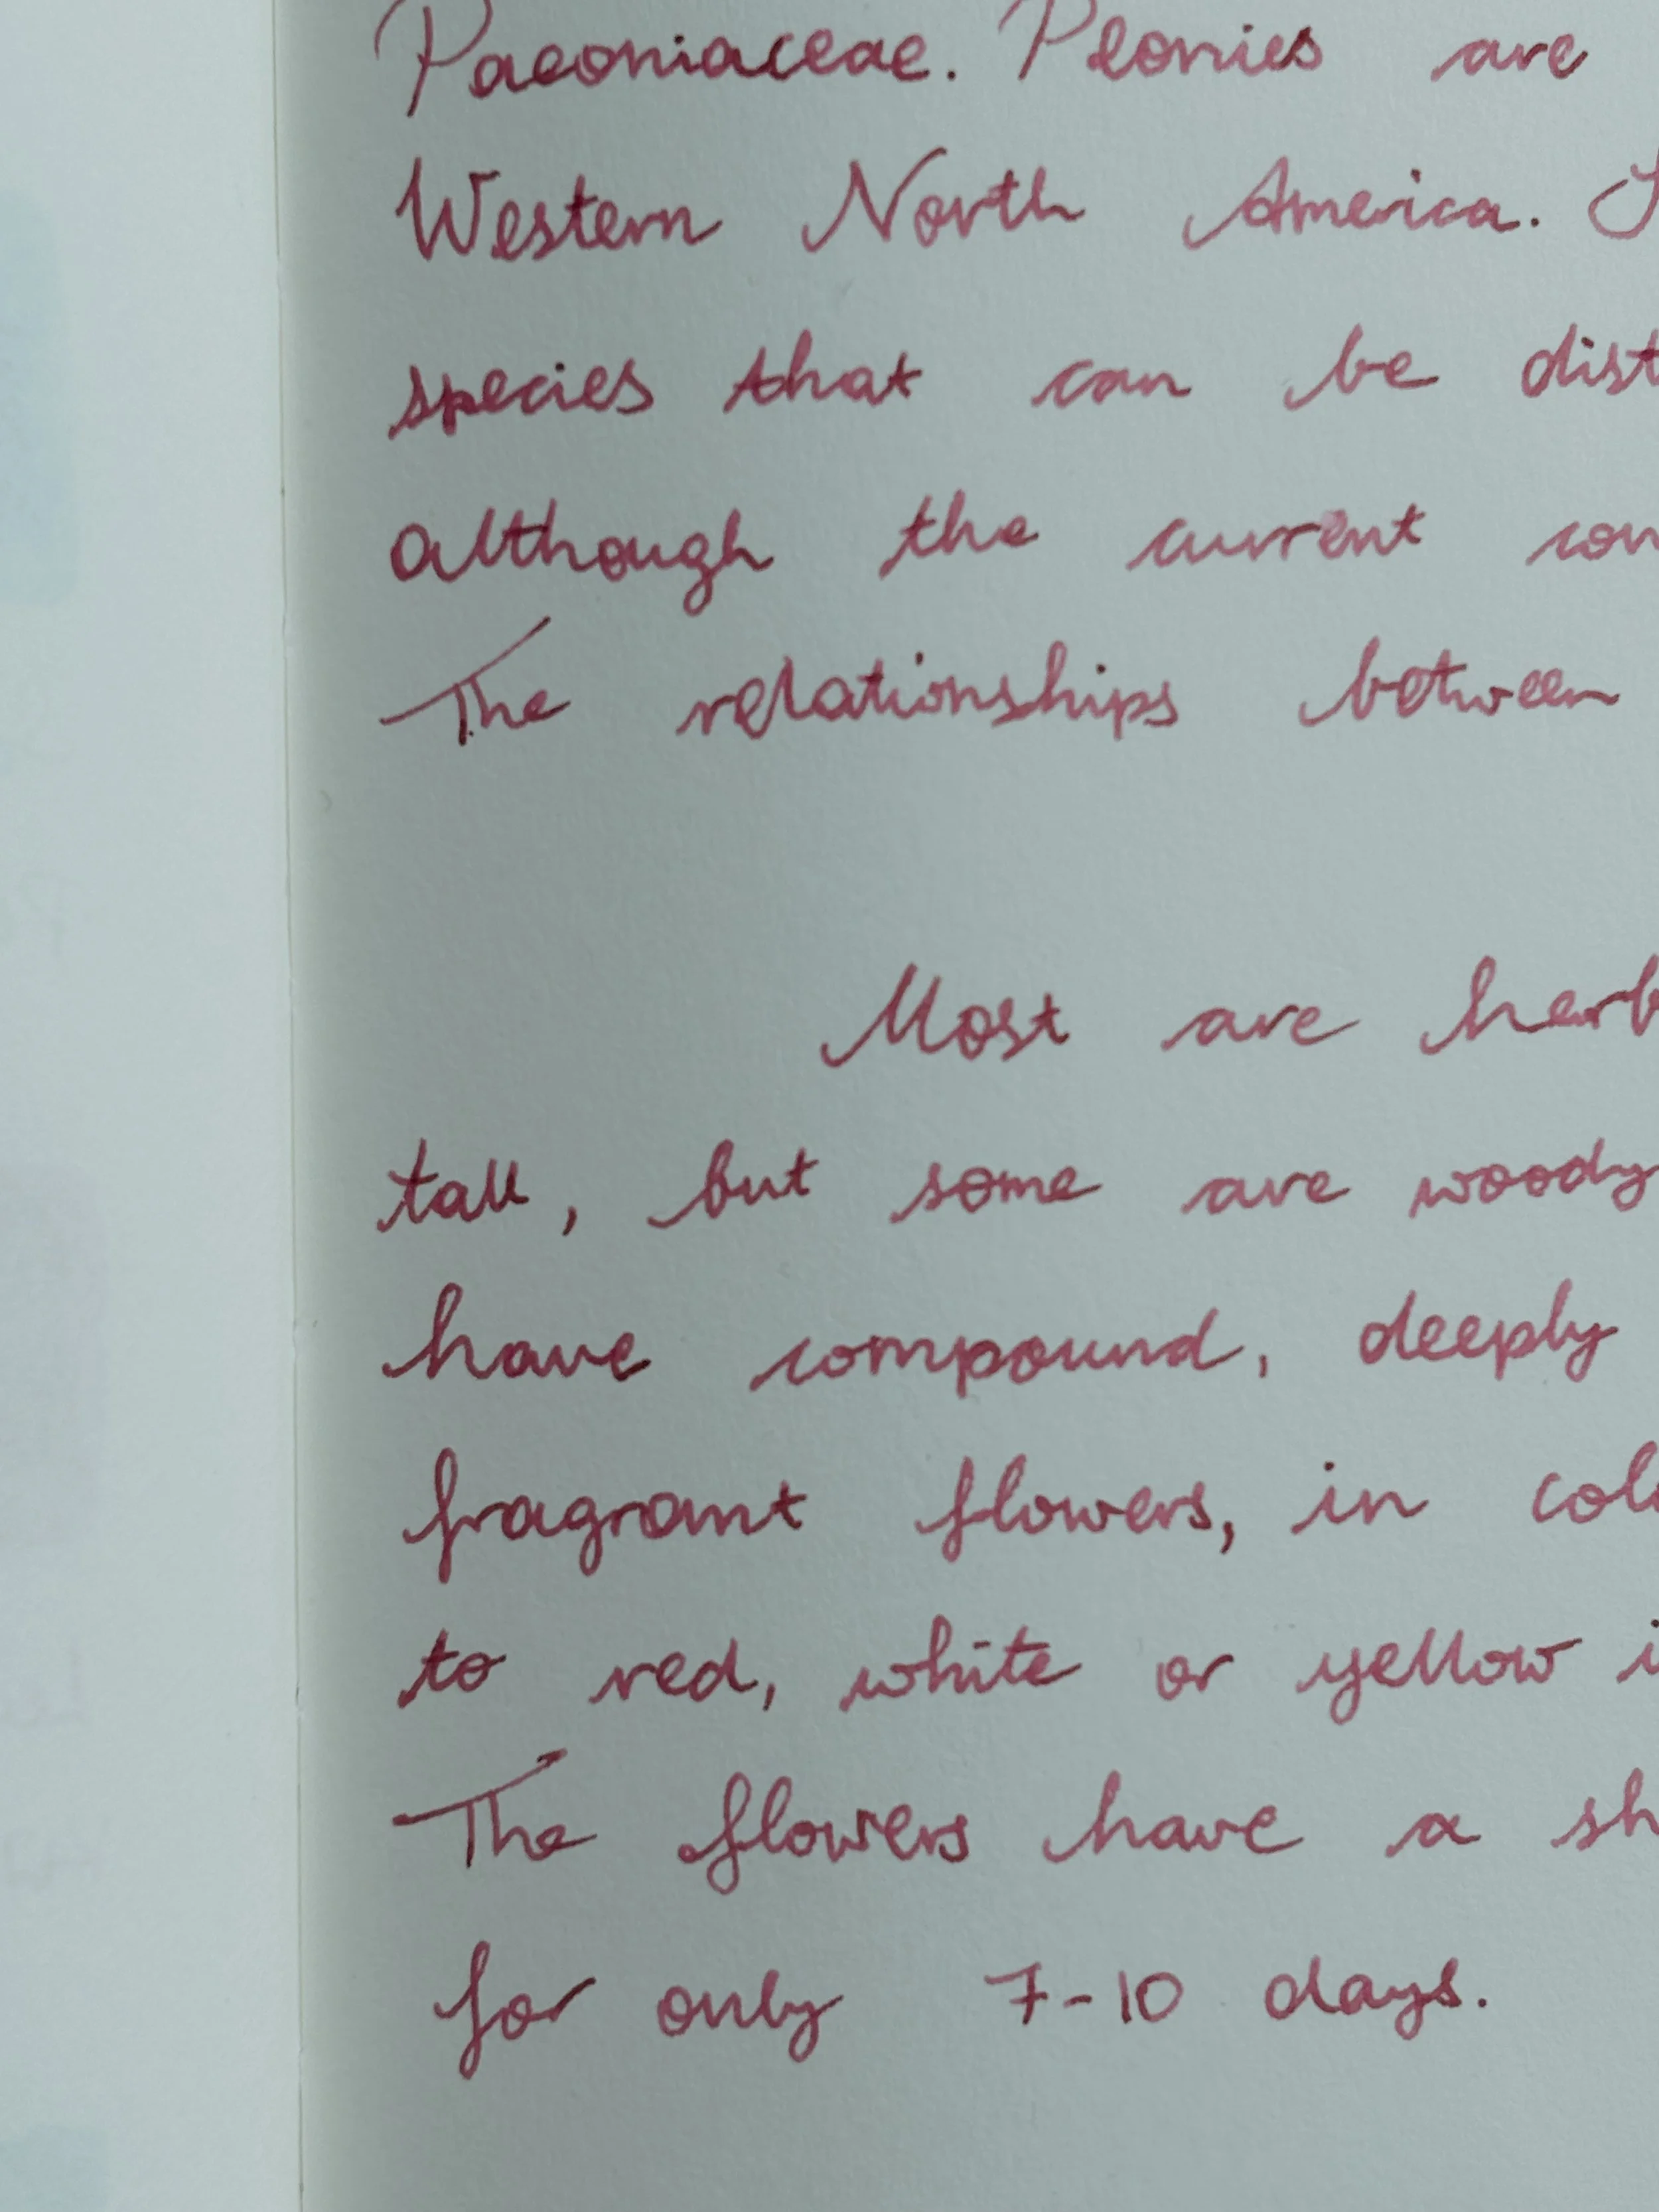 Paeoniaceae. Peonies are
Western North America.
species that can be dist
although the current con
The relationships between
Most are herb
tall, but some are woody
have compound, deeply
fragrant flowers, in colo
to red, white or yellow i
The flowers have a sh
for only 7-10 days.